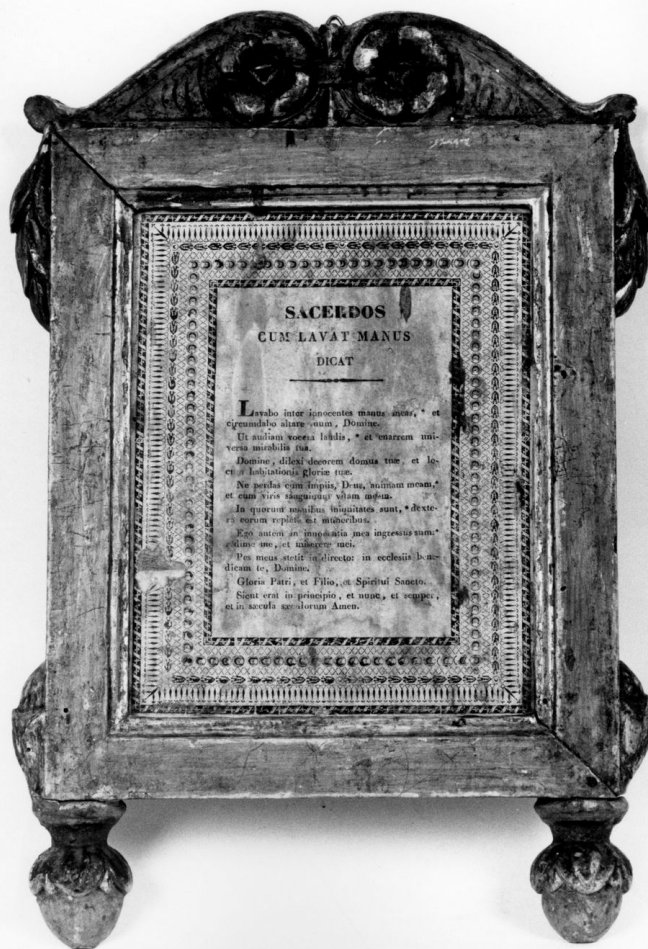 SACERDOS
CUM LAVAT MANUS
DICAT
Lavabo inter innocentes manus meas, * et
circumdabo altare tuum, Domine.
Ut audiam vocem laudis, * et enarrem uni-
versa mirabilia tua.
Domine, dilexi decorem domus tuæ, et lo-
cum habitationis gloriæ tuæ.
Ne perdas cum impiis, Deus, animam meam, *
et cum viris sanguinum vitam meam.
In quorum manibus iniquitates sunt, * dexte-
ra eorum repleta est muneribus.
Ego autem in innocentia mea ingressus sum: *
redime me, et miserere mei.
Pes meus stetit in directo: in ecclesiis bene-
dicam te, Domine.
Gloria Patri, et Filio, et Spiritui Sancto.
Sicut erat in principio, et nunc, et semper,
et in sæcula sæculorum Amen.